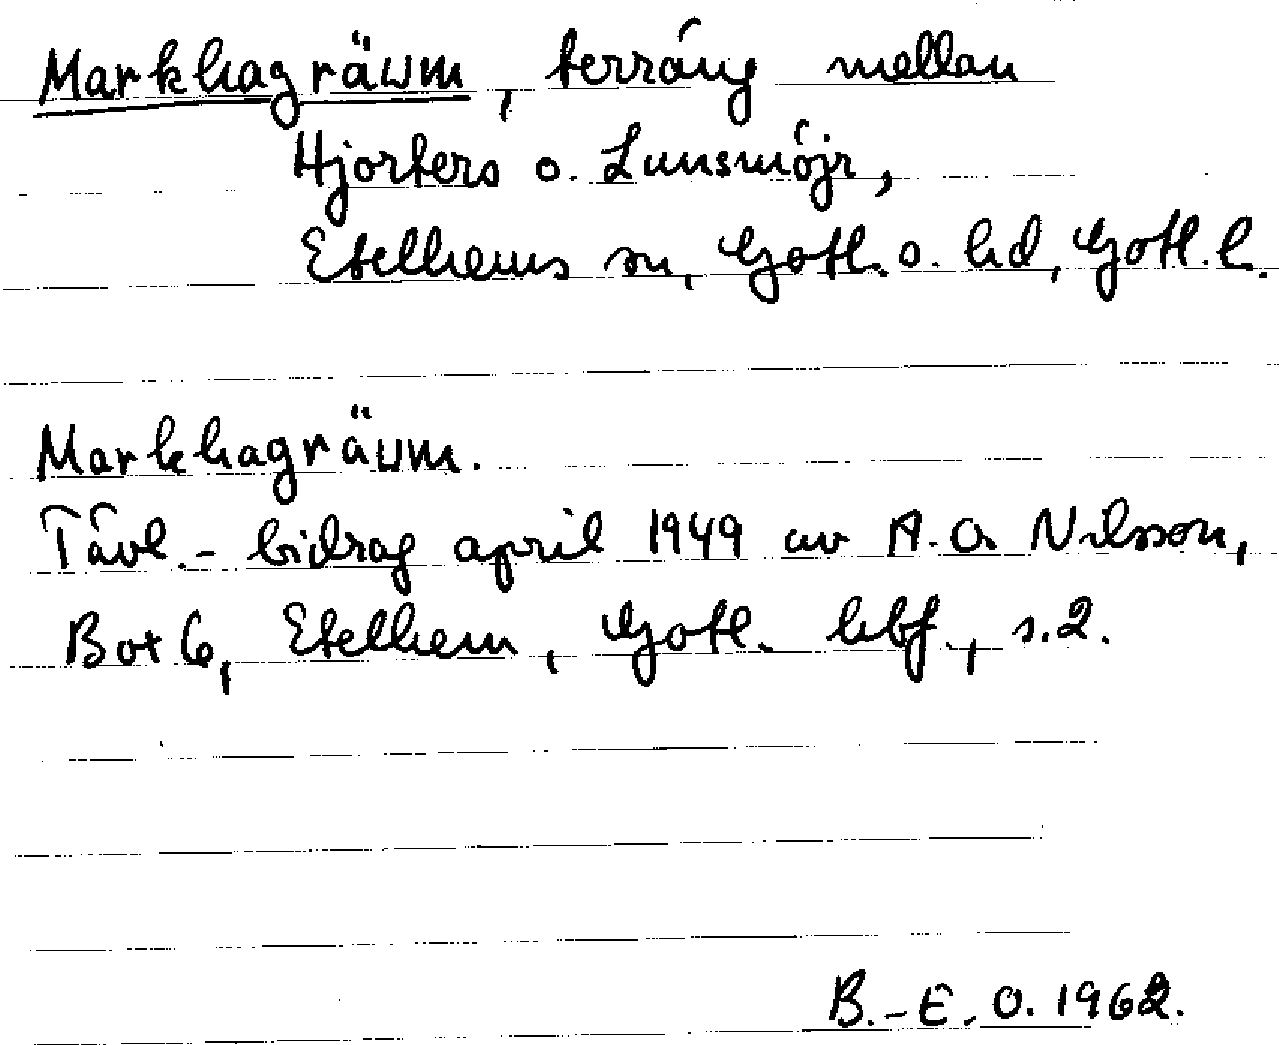 Markhagräum, terräng mellan
Hjorters o. Lunsmöjr,
Etelhems sn, Gotl. o. hd, Gotl. l.
Markhagräum.
Tävl.- bidrag april 1949 av A. O. Nilsson,
Box 6, Etelhem, Gotl. hbf., s. 2.
B.-E. O. 1962.